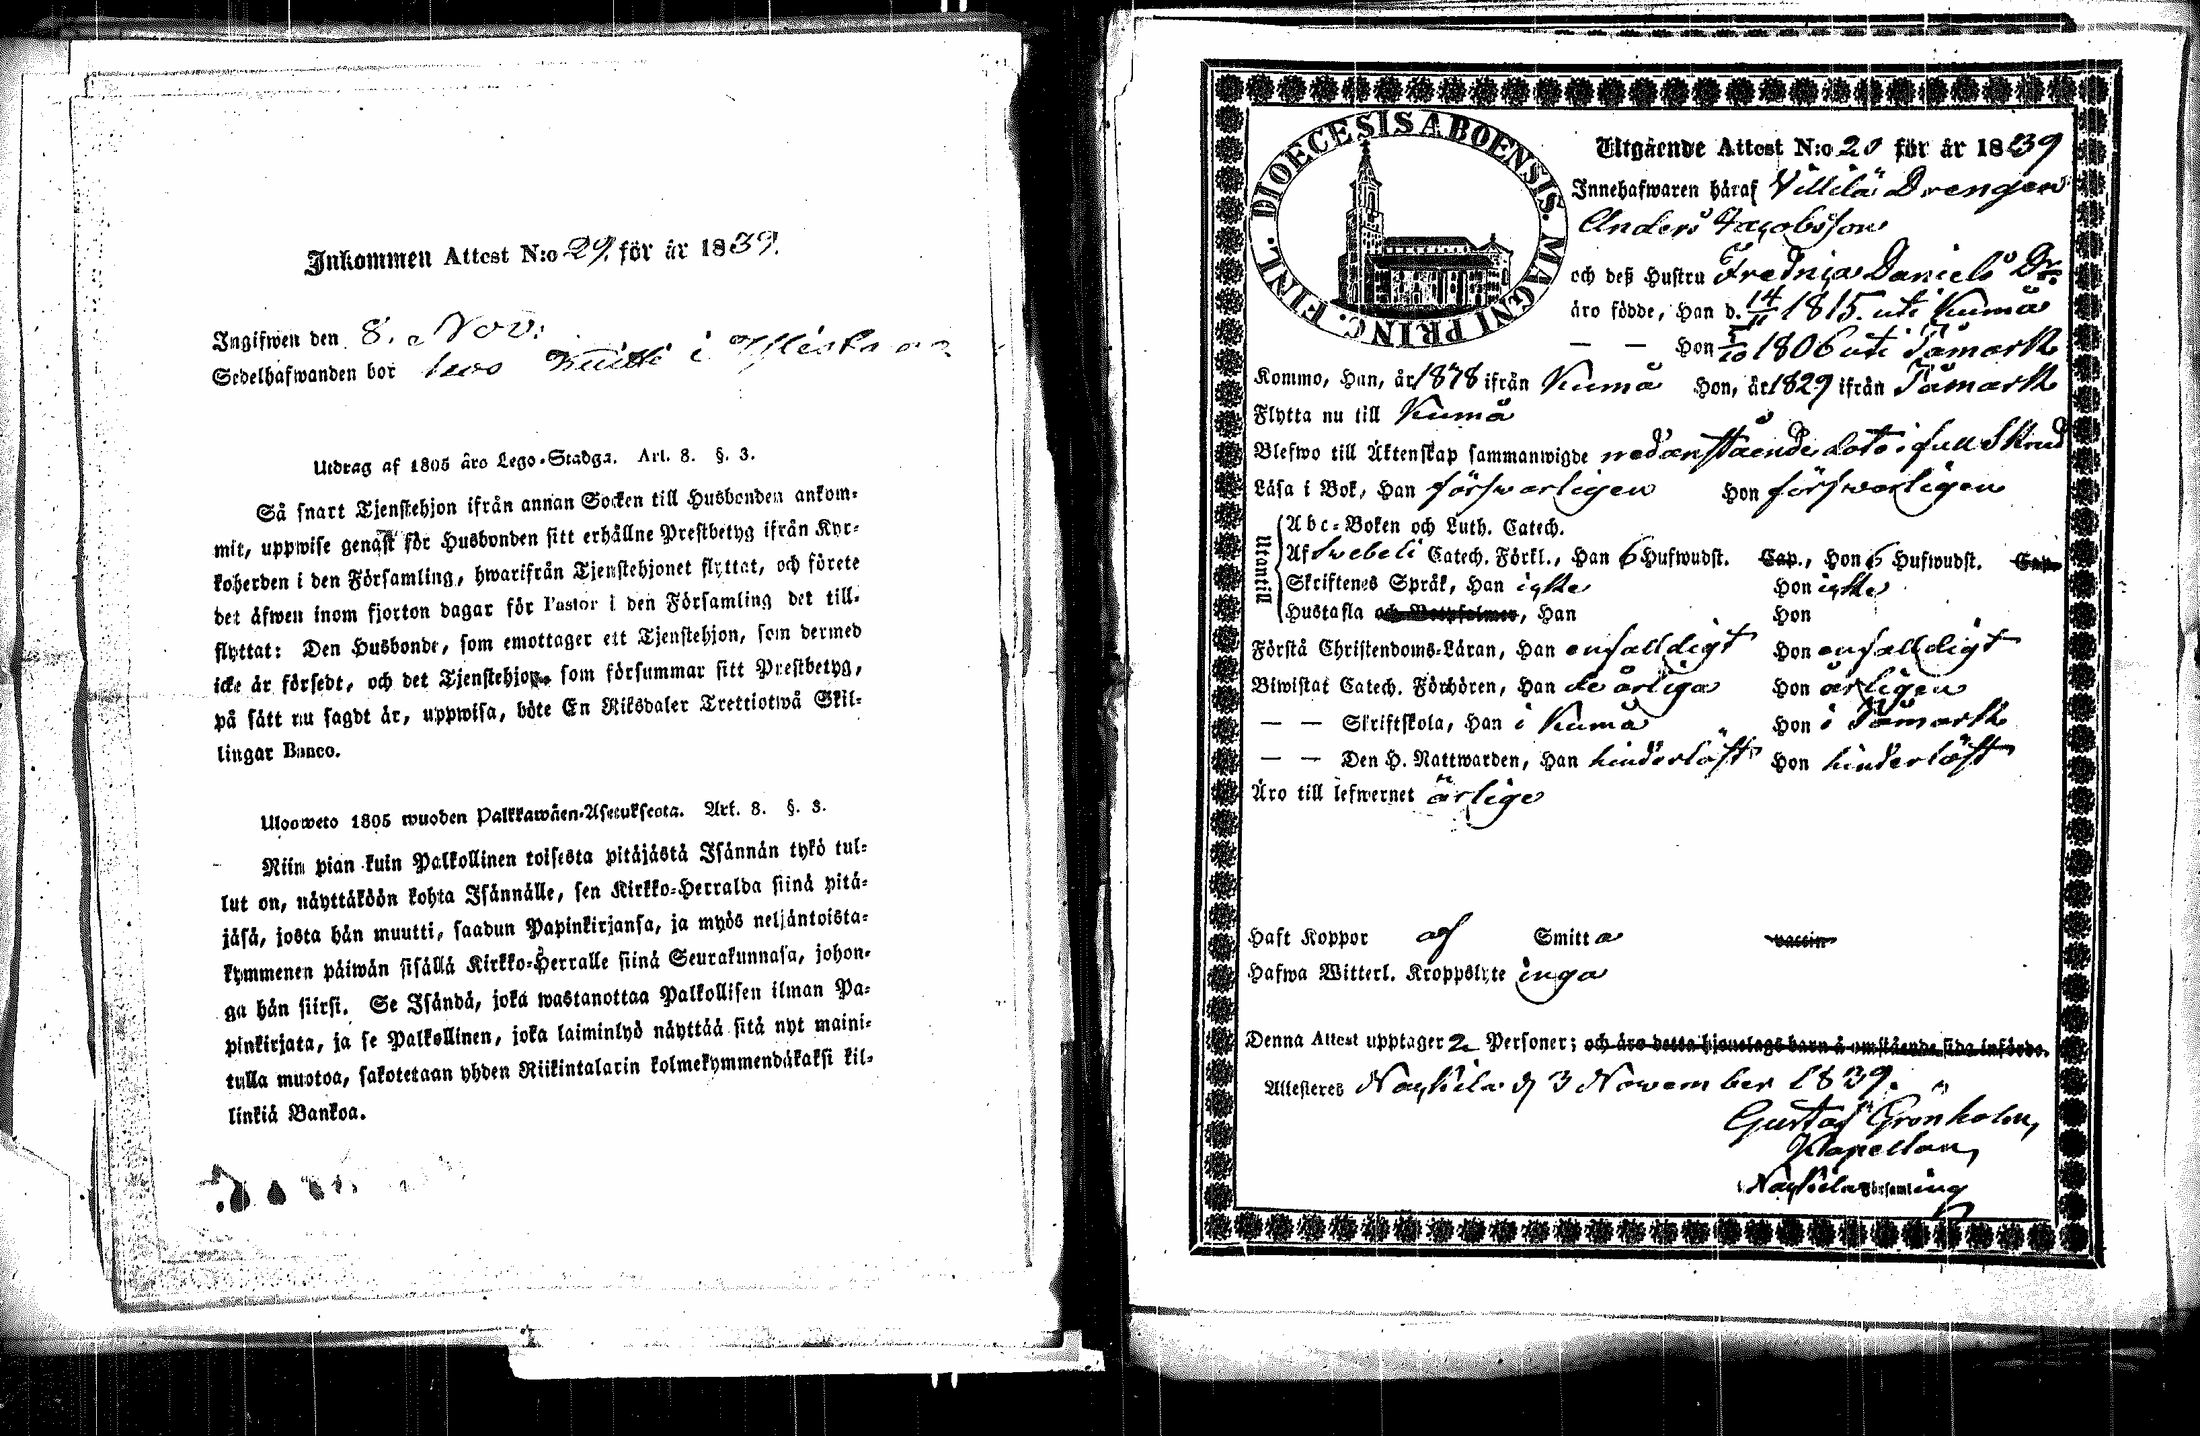 Inkommen Attest N:o 29. för år 1839.
Ingifwen den 8. Nov:
Sedelhafwanden bor hos i
Utdrag af 1805 års Lego-Stadga. Art. 8. §. 3.
Så snart Tjenstehjon ifrån annan Socken till Husbonden ankom-
mit, uppwise genast för Husbonden sitt erhållne Prestbetyg ifrån Kyr-
koherden i den Församling, hwarifrån Tjenstehjonet flyttat, och förete
det äfwen inom fjorton dagar för Pastor i den Församling det till-
flyttat: Den Husbonde, som emottager ett Tjenstehjon, som dermed
icke är försedt, och det Tjenstehjon, som försummar sitt Prestbetyg,
på sätt nu sagdt är, uppwisa, böte En Riksdaler Trettiotwå Skil-
lingar Banco.
Ulosweto 1805 wuoden Palkkawäen-Asetuksesta. Art. 8. §. 3.
Niin pian kuin Palkollinen toisesta pitäjästä Isännän tykö tul-
lut on, näyttäköön kohta Isännälle, sen Kirkko-Herralda siinä pitä-
jäsä, josta hän muutti, saadun Papinkirjansa, ja myös neljäntoista-
kymmenen päiwän sisällä Kirkko-Herralle siinä Seurakunnasa, johon-
ga hän siirsi. Se Isändä, joka wastanottaa Palkollisen ilman Pa-
pinkirjata, ja se Palkollinen, joka laiminlyö näyttää sitä nyt maini-
tulla muotoa, sakotetaan yhden Riikintalarin kolmekymmendäkaksi kil-
linkiä Bankoa.
DIOECESIS ABOENSIS. MAGNI PRINC. FINL.
Utgående Attest N:o 20 för år 1839
Innehafwaren häraf Villilä Drengen
Anders Jacobsson
och deß Hustru Fredrica Daniels Dr.
äro födde, Han d. 14/11 1815. uti Kumå
— — Hon 5/10 1806 uti Tåmark
Kommo, Han, år 1838 ifrån Kumå Hon, år 1829 ifrån Tåmark
Flytta nu till Kumå
Blefwo till Äktenskap sammanwigde nedanstående dato i full Skrud
Läsa i Bok, Han försvarligen Hon försvarligen
Utantill
Abc-Boken och Luth. Catech.
Af Svebeli Catech. Förkl., Han 6 Hufwudst. Cap., Hon 6 Hufwudst. Cap.
Skriftenes Språk, Han icke Hon icke
Hustafla och Botpsalmer, Han Hon
Förstå Christendoms-Läran, Han enfalldigt Hon enfalldigt
Biwistat Catech. Förhören, Han de årliga Hon årligen
— — Skriftskola, Han i Kumå Hon i Tåmark
— — Den H. Nattwarden, Han hinderlöst Hon hinderlöst
Äro till lefwernet ärlige
Haft Koppor af Smitta vaccin
Hafwa Witterl. Kroppslyte inga
Denna Attest upptager 2 Personer; och äro detta hjonelags barn å omstående sida införde.
Attesteres Naykila d 3 November 1839.
Gustaf Grönholm,
Kapellan,
i Naykila Församling